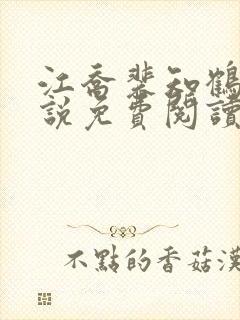 江喬裴知鶴
說免費閱讀
不點的香菇漢